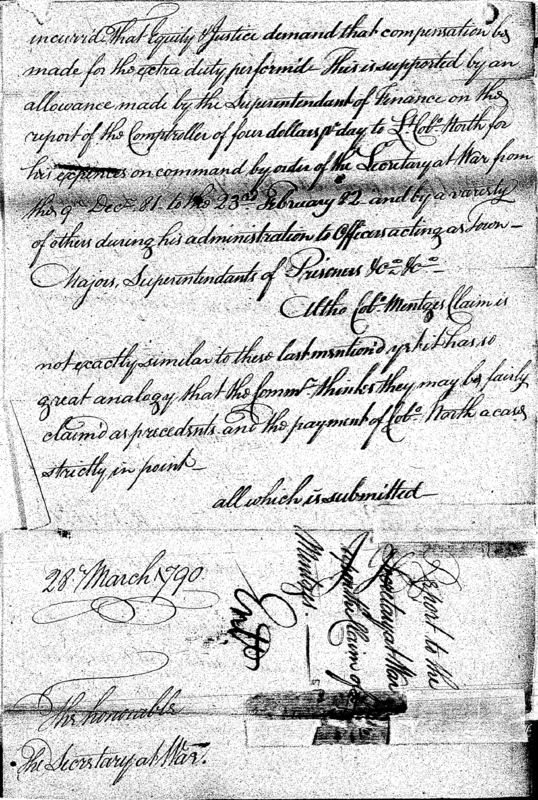 incurrd. That Equity & Justice demand that compensation be
made for the extra duty performd — This is supported by an
allowance made by the Superintendant of Finance on the
report of the Comptroller of four dollars pr day to Lt Colo. North for
his expences on command by order of the Secretary at War from
the 9th Decr. 81. to the 23rd February 82 and by a variety
of others during his administration to Officers acting as Town-
Majors, Superintendants of Prisoners &ca &ca —
Altho Colo. Mentges Claim is
not exactly similar to these last mention'd yet it has so
great analogy that the Commr. thinks they may be fairly
claim'd as precedents and the payment of Colo. North a case
strictly in point —
all which is submitted —
28th March 1790
The honorable
The Secretary at War.
Report to the
Secretary at War
upon the Claim of
Mentges. —
Entd.